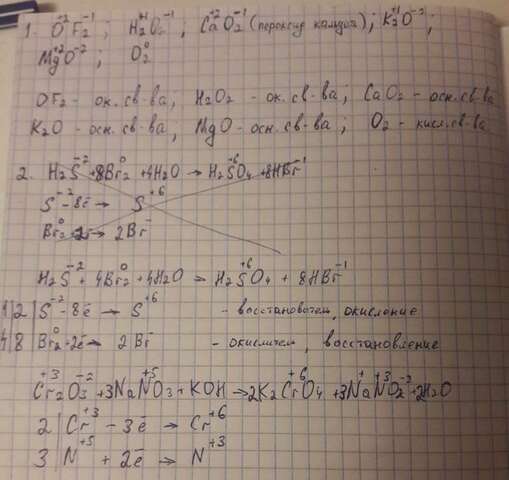 1. O⁺²F₂⁻¹; H₂⁺¹O₂⁻¹; Ca⁺²O₂⁻¹ (пероксид кальция); K₂⁺¹O⁻²;
Mg⁺²O⁻²; O₂⁰
OF₂ - ок. св-ва; H₂O₂ - ок. св-ва; CaO₂ - осн. св-ва
K₂O - осн. св-ва; MgO - осн. св-ва; O₂ - кисл. св-ва
2. H₂S⁻² + 8Br₂⁰ + 4H₂O → H₂S⁺⁶O₄ + 8HBr⁻¹
S⁻² - 8ē → S⁺⁶
Br₂⁰ + 2ē → 2Br⁻
H₂S⁻² + 4Br₂⁰ + 4H₂O → H₂S⁺⁶O₄ + 8HBr⁻¹
1|2| S⁻² - 8ē → S⁺⁶ - восстановитель, окисление
4|8| Br₂⁰ + 2ē → 2Br⁻ - окислитель, восстановление
Cr₂⁺³O₃⁻² + 3NaN⁺⁵O₃ + KOH → 2K₂Cr⁺⁶O₄ + 3Na⁺N⁺³O₂⁻² + 2H₂O
2| Cr⁺³ - 3ē → Cr⁺⁶
3| N⁺⁵ + 2ē → N⁺³